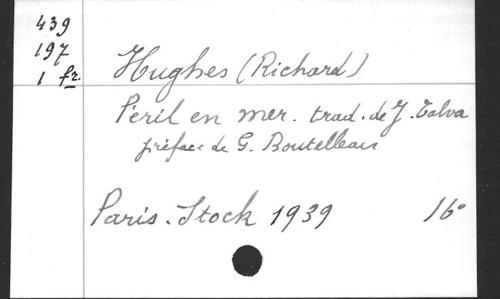 439
197
1 fr.
Hughes (Richard)
Péril en mer. trad. de J. Talva
préface de G. Boutelleau
Paris. Stock 1939 16°